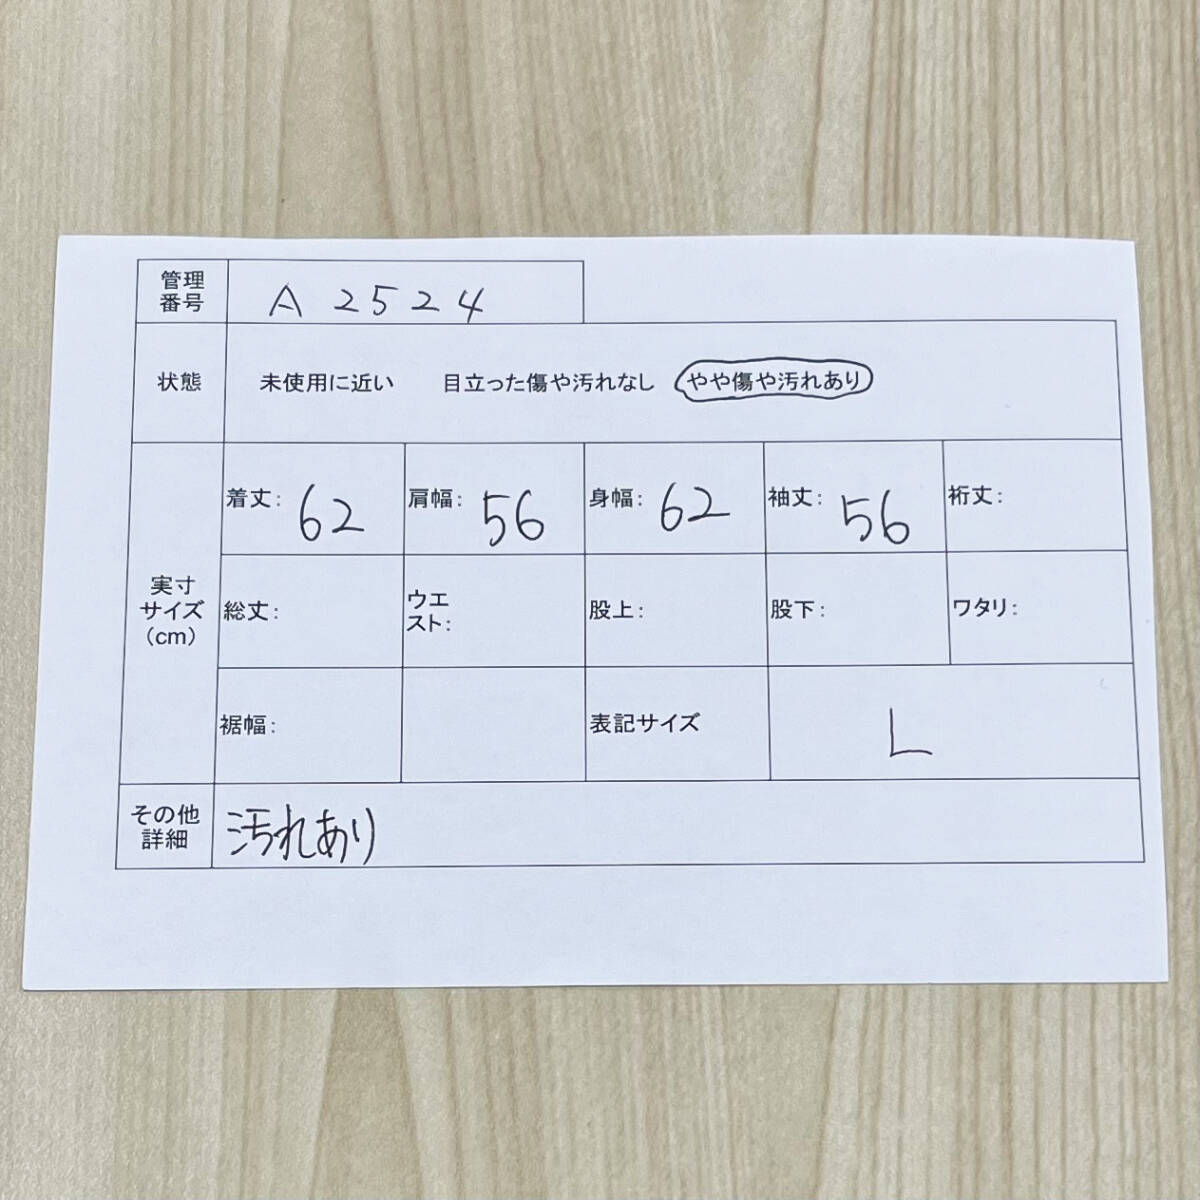 管理
番号
A 2524
状態
未使用に近い 目立った傷や汚れなし やや傷や汚れあり
実寸
サイズ
(cm)
着丈: 62
肩幅: 56
身幅: 62
袖丈: 56
裄丈:
総丈:
ウエ
スト:
股上:
股下:
ワタリ:
裾幅:
表記サイズ
L
その他
詳細
汚れあり